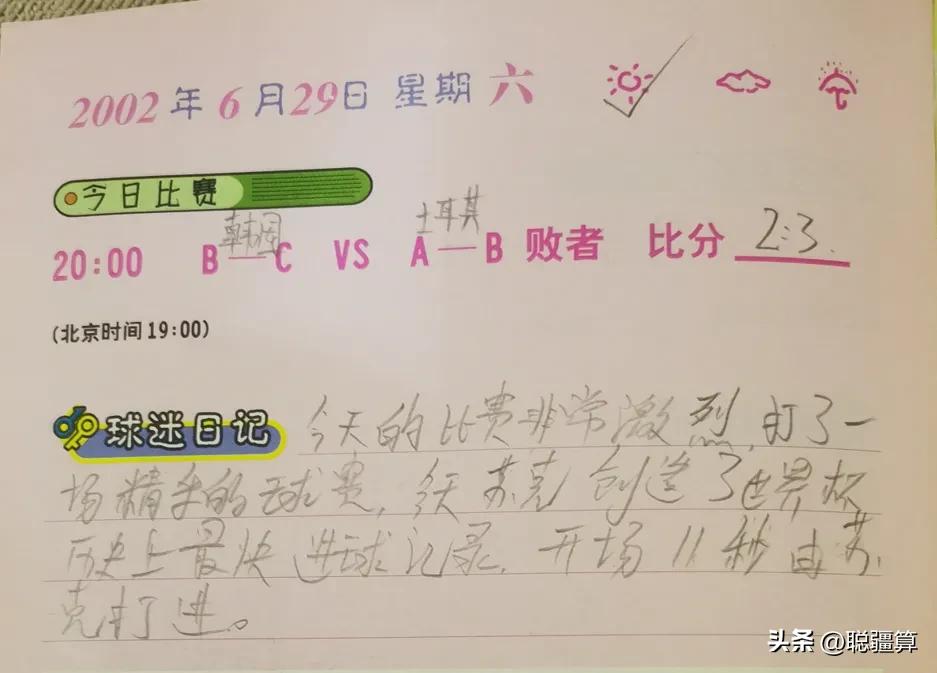 2002年6月29日 星期六
今日比赛
韩国 土耳其
20:00 B—C VS A—B 败者 比分 2:3.
(北京时间19:00)
球迷日记 今天的比赛非常激烈,打了一
场精采的球赛,今天苏克创造了世界杯
历史上最快进球记录.开场11秒由苏
克打进。
头条 @聪疆算